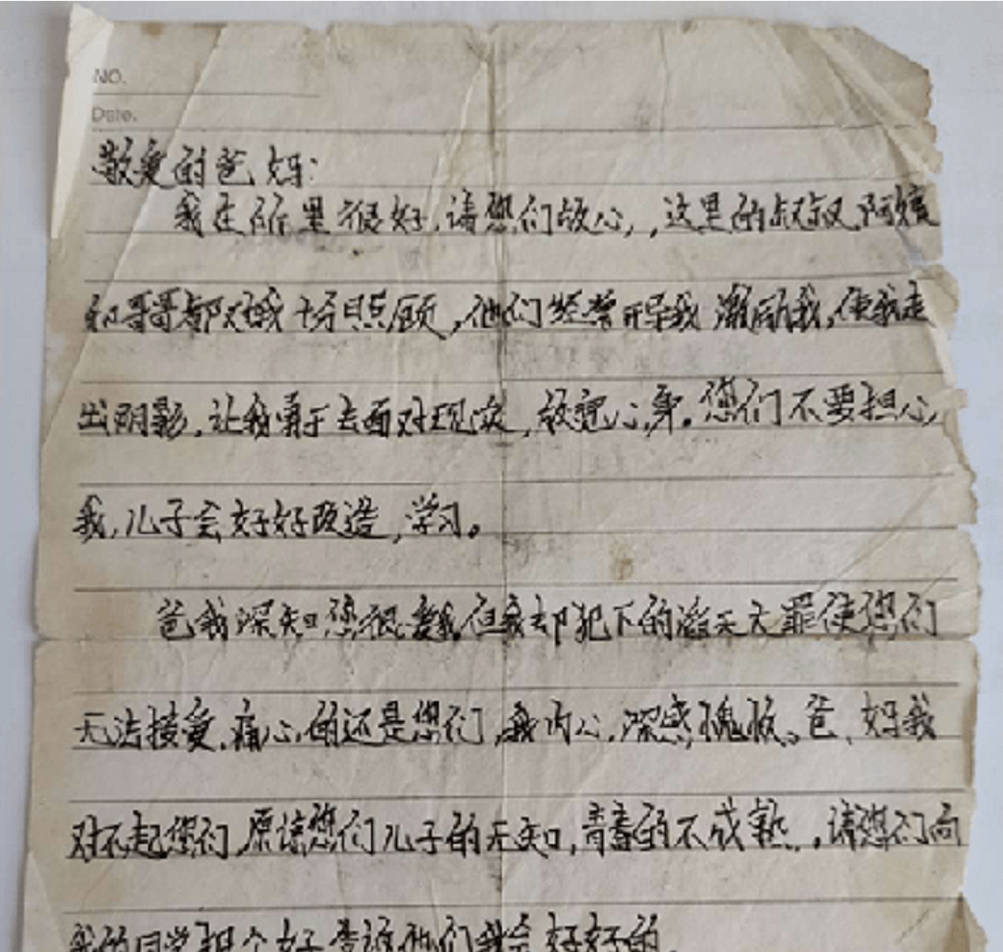 NO.
Date.
敬爱的爸妈:
我在所里很好,请您们放心,,这里的叔叔,阿姨
和哥哥都对我十分照顾,他们经常开导我 激励我,使我走
出阴影,让我勇于去面对现实,放宽心身。您们不要担心
我,儿子会好好改造,学习。
爸我深知您很爱我但我却犯下的滔天大罪使您们
无法接受,痛心的还是您们,我内心,深感愧疚。爸、妈我
对不起您们,原谅您们儿子的无知,青春的不成熟,,请您们向
我的同学们 个好 告诉他们我会好好的。